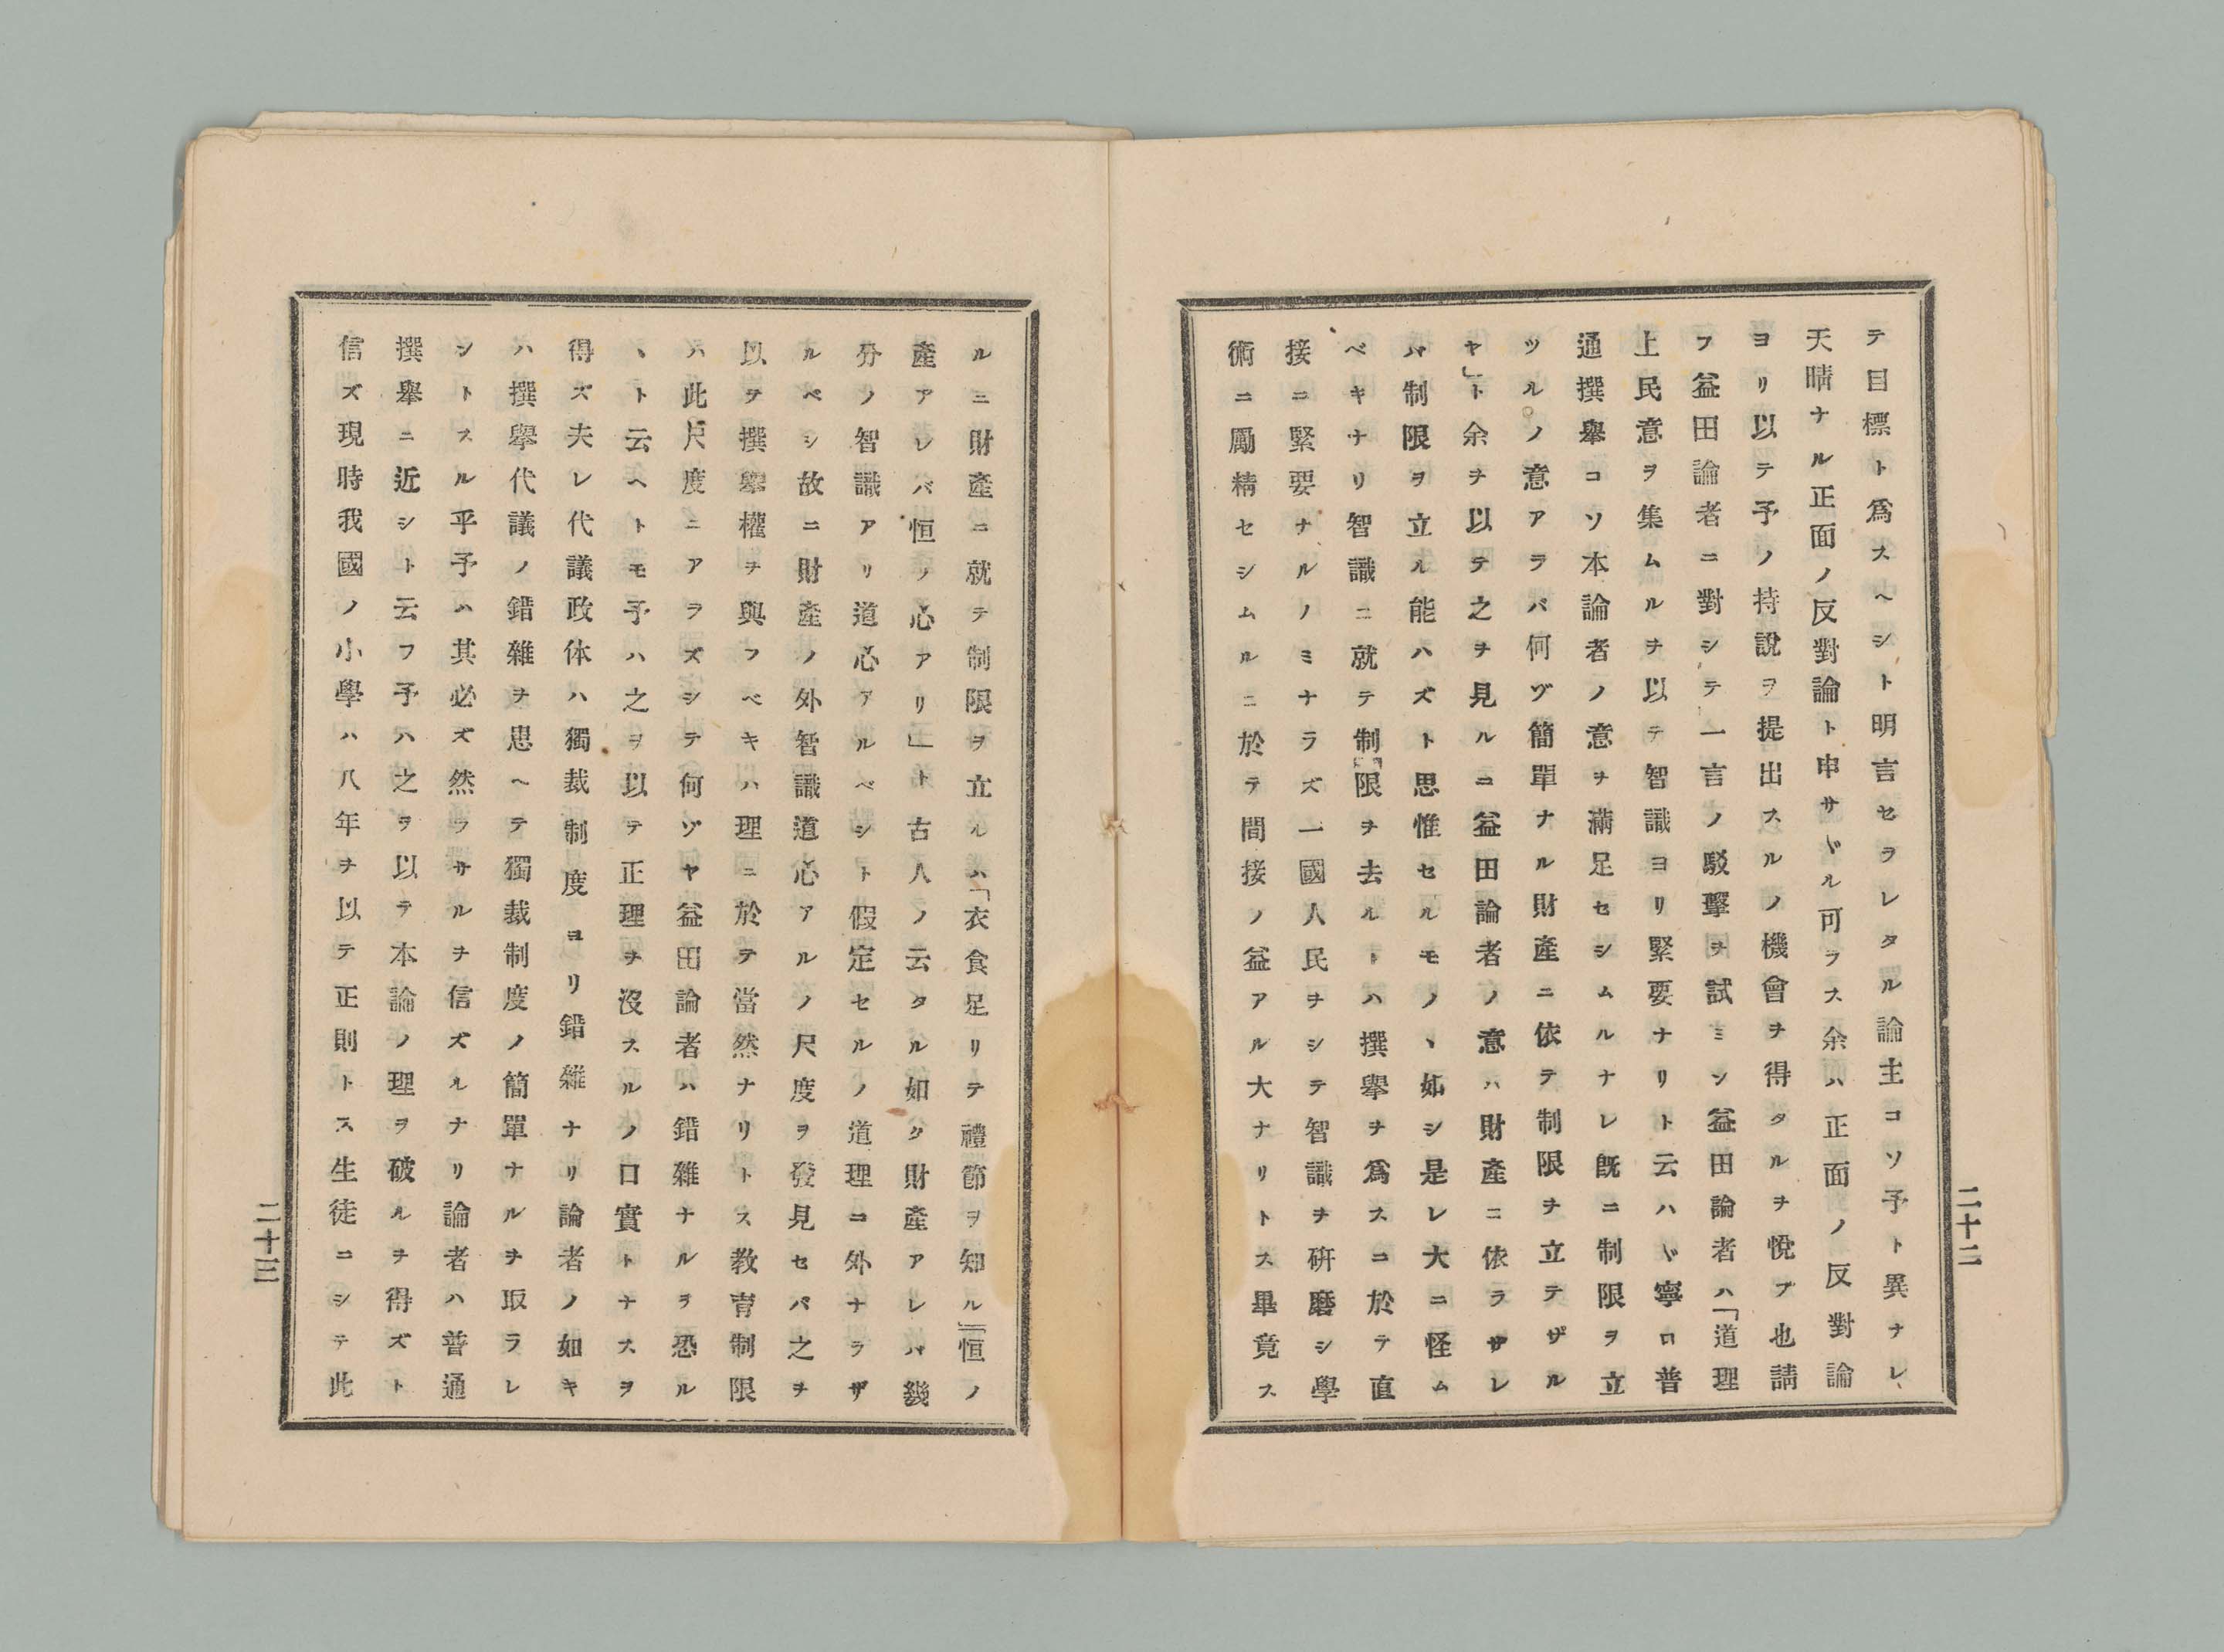 テ目標ト爲スヘシト明言セラレタル論主コソ予ト異ナレ、
天晴ナル正面ノ反對論ト申サヾル可ラス余ハ正面ノ反對論
ヨリ以テ予ノ持說ヲ提出スルノ機會ヲ得タルヲ悅ブ也請
フ益田論者ニ對シテ一言ノ駁擊ヲ試ミン益田論者ハ「道理
上民意ヲ集ムルヲ以テ智識ヨリ緊要ナリト云ハヾ寧ロ普
通撰擧コソ本論者ノ意ヲ滿足セシムルナレ既ニ制限ヲ立
ツルノ意アラバ何ゾ簡單ナル財產ニ依テ制限ヲ立テザル
ヤ」ト余ヲ以テ之ヲ見ルニ益田論者ノ意ハ財產ニ依ラサレ
バ制限ヲ立ル能ハズト思惟セルモノヽ如シ是レ大ニ怪ム
ベキナリ智識ニ就テ制「限ヲ去ルトハ撰擧ヲ爲スニ於テ直
接ニ緊要ナルノミナラズ一國人民ヲシテ智識ヲ硏磨シ學
術ニ勵精セシムルニ於テ間接ノ益アル大ナリトス畢竟ス
二十二
ルニ財產ニ就テ制限ヲ立ルハ「衣食足リテ禮節ヲ知ル」「恒ノ
產アレバ恒ノ心アリ」ト古人ノ云タル如ク財產アレバ幾
分ノ智識アリ道心アルベシト假定セルノ道理ニ外ナラザ
ルベシ故ニ財產ノ外智識道心アルノ尺度ヲ發見セバ之ヲ
以ヲ撰擧權ヲ與フベキハ理ニ於テ當然ナリトス教育制限
ハ此尺度ニアラズシテ何ゾヤ益田論者ハ錯雜ナルヲ恐ル
ヽト云ヘトモ予ハ之ヲ以テ正理ヲ沒スルノ口實トナスヲ
得ズ夫レ代議政体ハ獨裁制度ヨリ錯雜ナリ論者ノ如キ
ハ撰擧代議ノ錯雜ヲ思ヘテ獨裁制度ノ簡單ナルヲ取ラレ
ントスル乎予ハ其必ズ然ラサルヲ信ズルナリ論者ハ普通
撰擧ニ近シト云フ予ハ之ヲ以テ本論ノ理ヲ破ルヲ得ズト
信ズ現時我國ノ小學ハ八年ヲ以テ正則トス生徒ニシテ此
二十三